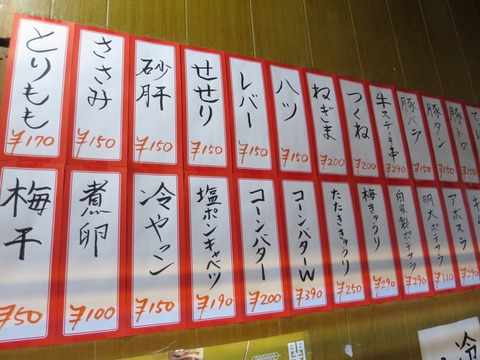 とりもも
¥170
ささみ
¥150
砂肝
¥150
せせり
¥150
レバー
¥150
ハツ
¥150
ねぎま
¥200
つくね
¥200
牛ステーキ串
¥290
豚バラ
¥150
豚タン
¥150
豚トロ
¥150
梅干
¥50
煮卵
¥100
冷ヤッコ
¥150
塩ポンキャベツ
¥190
コーンバター
¥200
コーンバターW
¥390
たたききゅうり
¥250
梅きゅうり
¥290
自家製ポテサラ
¥290
明太ポテサラ
¥310
アボスラ
¥290
冷